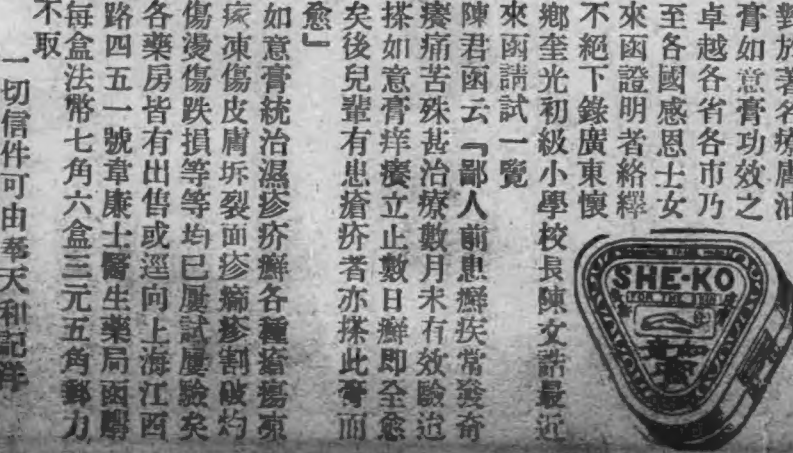 對於著名療膚油
膏如意膏功效之
卓越各省各市乃
至各國感恩士女
來函證明者絡繹
不絕下錄廣東懷
鄉奎光初級小學校長陳文誥最近
來函請試一覽
陳君函云『鄙人前患癬疾常發奇
癢痛苦殊甚治療數月未有效驗迨
搽如意膏痒癢立止數日癬即全愈
矣後兒輩有患瘡疥者亦搽此膏而
愈』
如意膏統治濕疹疥癬各種瘡瘍
凍傷皮膚坼裂面疹癤疹割破灼
傷燙傷跌損等等均已屢試屢驗矣
各藥房皆有出售或逕向上海江西
路四五一號韋廉士醫生藥局函購
每盒法幣七角六盒三元五角郵力
不取
一切信件可由奉天和記洋
SHE-KO
FOR THE SKIN